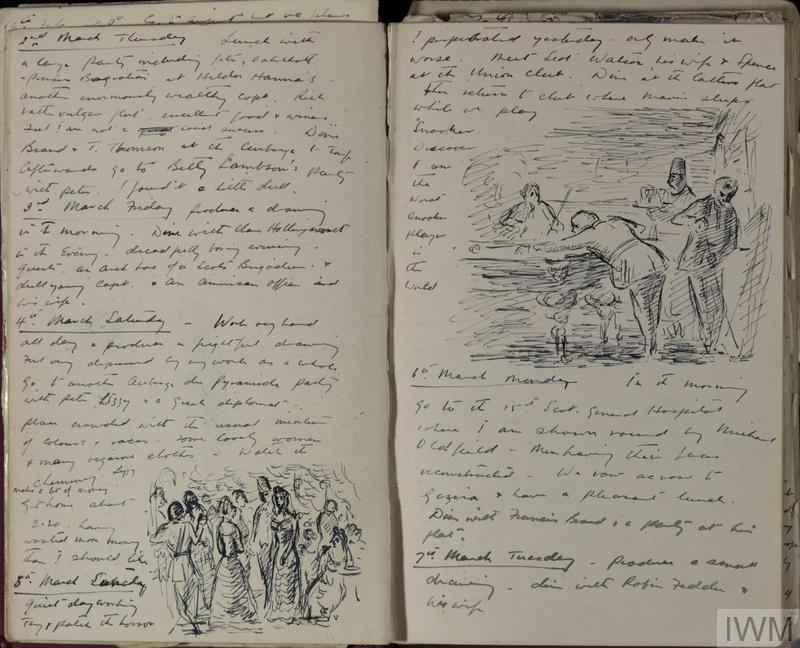 2nd March Thursday Lunch with
a large party including Pete,
Princess Bagration at Hilda Hanna's -
another enormously wealthy copt. Rich
rather vulgar flat. excellent food & wines.
Feel I am not a social success. Dine
Brand & T. Thomson at the Auberge &
afterwards go to Betty Lambson's party
with Pete. I found it a little dull.
3rd March Friday produce a drawing
in the morning. Dine with Clare Hollingsworth
in the evening. dreadfully boring evening
guests an arch bore of a Scots Brigadier. &
dull young Capt. & an American officer and
his wife.
4th March Saturday - Work very hard
all day & produce a frightful drawing
Feel very depressed by my work as a whole.
Go to another Auberge des Pyramides party
with Pete Lizzy & a Greek diplomat.
place crowded with the usual mixture
of colours & races - some lovely women
& many bizarre clothes - Watch the
charming Lizzy
make a lot of money
Get home about
2.30. having
wasted more money
than I should like
5th March Sunday
Quiet day working
Try & polish the horror
I perpetrated yesterday - only make it
worse. Meet Scot Watson his wife & Spencer
at the Union Club. Dine at the latters flat
& then return to club where Mavis sleeps
while we play
Snooker
Discover
I am
the
worst
snooker
player
in
the
world
6th March Monday In the morning
go to the 15th Scot. General Hospital
where I am shown round by Michael
Oldfield - Men having their faces
reconstructed - We row across to
Gezera & have a pleasant lunch.
Dine with Francis Brand & a party at his
flat.
7th March Tuesday - Produce a small
drawing - dine with Robin Fedden &
his wife
IWM